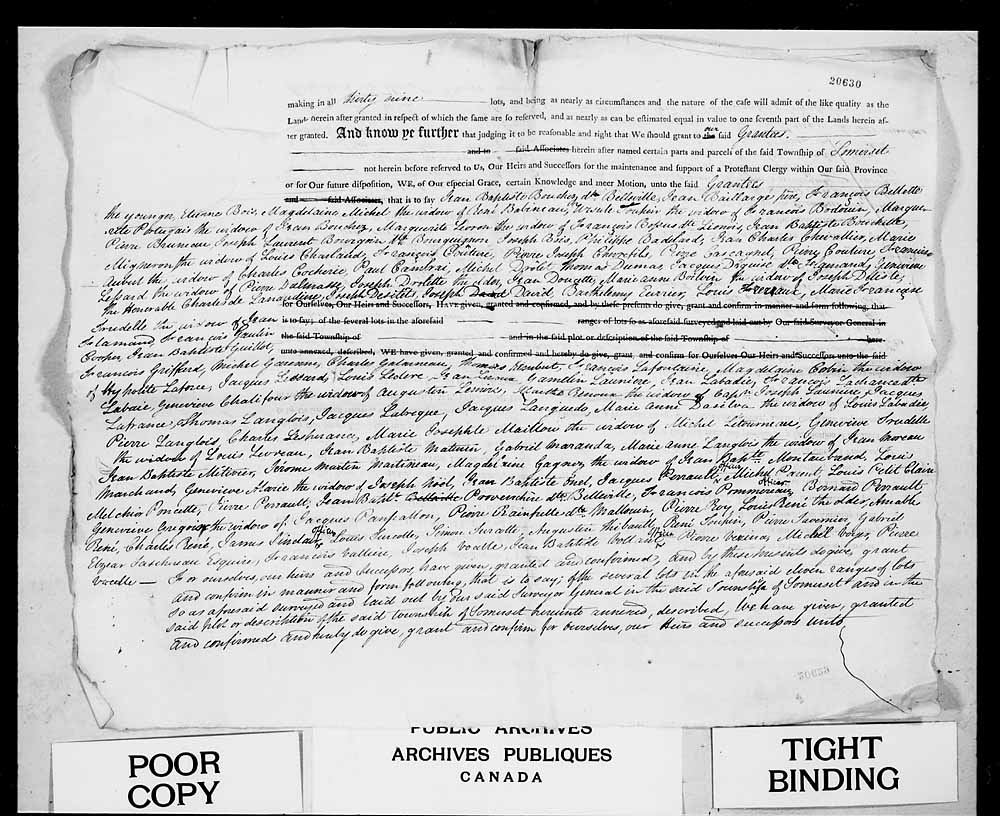 20630
making in all thirty nine lots, and being as nearly as circumstances and the nature of the case will admit of the like quality as the
Lands herein after granted in respect of which the same are so reserved, and as nearly as can be estimated equal in value to one seventh part of the Lands herein af-
ter granted. And know ye further that judging it to be reasonable and right that We should grant to our said Grantees.
and to said Associates herein after named certain parts and parcels of the said Township of Somerset
not herein before reserved to Us, Our Heirs and Successors for the maintenance and support of a Protestant Clergy within Our said Province
or for Our future disposition, WE, of Our especial Grace, certain Knowledge and meer Motion, unto the said Grantees
and said Associates, that is to say Jean Baptiste Bouchez dte Belleville, Jean Baillarge père, François Bellette
the younger, Etienne Bois, Magdelaine Michel the widow of René Babineau, Ursule the widow of Francois Bedouin, Margue-
rite Potugais the widow of Jean Bouchez, Marguerite the widow of François dte Lionois, Jean Baptiste
Pierre Bruneau Joseph Laurent Bourgoin dte Bourguignon Joseph Bois, Philippe Badelard, Jean Charles Chevallier, Marie
Migneron the widow of Louis Charland, François Couture, Pierre Joseph Pierre Gascagnol, Pierre Couture François
Aubert the widow of Charles Cocherie, Paul Cambrai, Michel Drolet Thomas Dumas, Jacques dte Genevieve
Lessard the widow of Pierre Joseph Drolette the elder, Jean Doucette, Marie anne Boilvin the widow of Joseph
the Honorable Charles de Lanaudière, Joseph Desilets, Joseph David Barthelemy Louis Marie Françoise
for Ourselves, Our Heirs and Successors, Have given, granted and confirmed, and by these presents do give, grant and confirm in manner and form following, that
Trudelle the widow of Jean is to say; of the several lots in the aforesaid ranges of lots so as aforesaid surveyed and laid out by Our said Surveyor General in
Flamand, François the said Township of and in the said plot or description of the said Township of here-
Cooper, Jean Baptiste Guillot, unto annexed, described, WE have given, granted and confirmed and hereby do give, grant, and confirm for Ourselves Our Heirs and Successors unto the said
François Griffard, Michel Charles Galarneau, Thomas François Lafontaine, Magdelaine the widow
of Hypolite Laforce, Jacques Lessard, Louis Leclerc, Jean Gamelin Launière, Jean Labadie, François Lachance dte
Labaie, Genevieve Chalifour the widow of Augustin the widow of Captn Joseph Launière, Jacques
Lafrance, Thomas Langlois, Jacques Labreque, Jacques Languedo, Marie Anne Dasilva the widow of Louis Labadie,
Pierre Langlois, Charles Lesperance, Marie Josephte Mailloux the widow of Michel Letourneau, Genevieve Trudelle
the widow of Louis Jean Baptiste Mathurin, Gabriel Maranda, Marie Anne Langlois the widow of Jean Moreau
Jean Baptiste Métivier, Jérome Martin Martineau, Magdelaine Gagnez the widow of Jean Baptte Louis
Marchand, Genevieve Marie the widow of Joseph Noël, Jean Baptiste Jacques Perrault, Michel Parent, Louis Petit Claire
Melchior Poncette, Pierre Perrault, Jean Baptt. dte Belleville, François Bernard Perrault
Genevieve the widow of Jacques Panfaston, Pierre Rainfrette dte Mallouin, Pierre Roy, Louis René the older, Amable
René, Charles René, James Sinclair, Louis Turcotte, Simon Turatte, Augustin Thibault, René Toupin, Pierre Tavernier, Gabriel
Elzear Taschereau Esquire, François Valliere, Joseph Jean Batiste Pierre Michel Pierre
For ourselves, our heirs and successors, have given, granted and confirmed, and by these presents do give, grant
and confirm in manner and form following, that is to say; of the several lots in the aforesaid eleven ranges of lots
so as aforesaid surveyed and laid out by our said Surveyor General in the said Township of Somerset and in the
said plot or description of the said township of Somerset hereunto annexed, described, We have given, granted
and confirmed and hereby do give, grant and confirm for ourselves, our heirs and successors unto
POOR
COPY
PUBLIC ARCHIVES
ARCHIVES PUBLIQUES
CANADA
TIGHT
BINDING